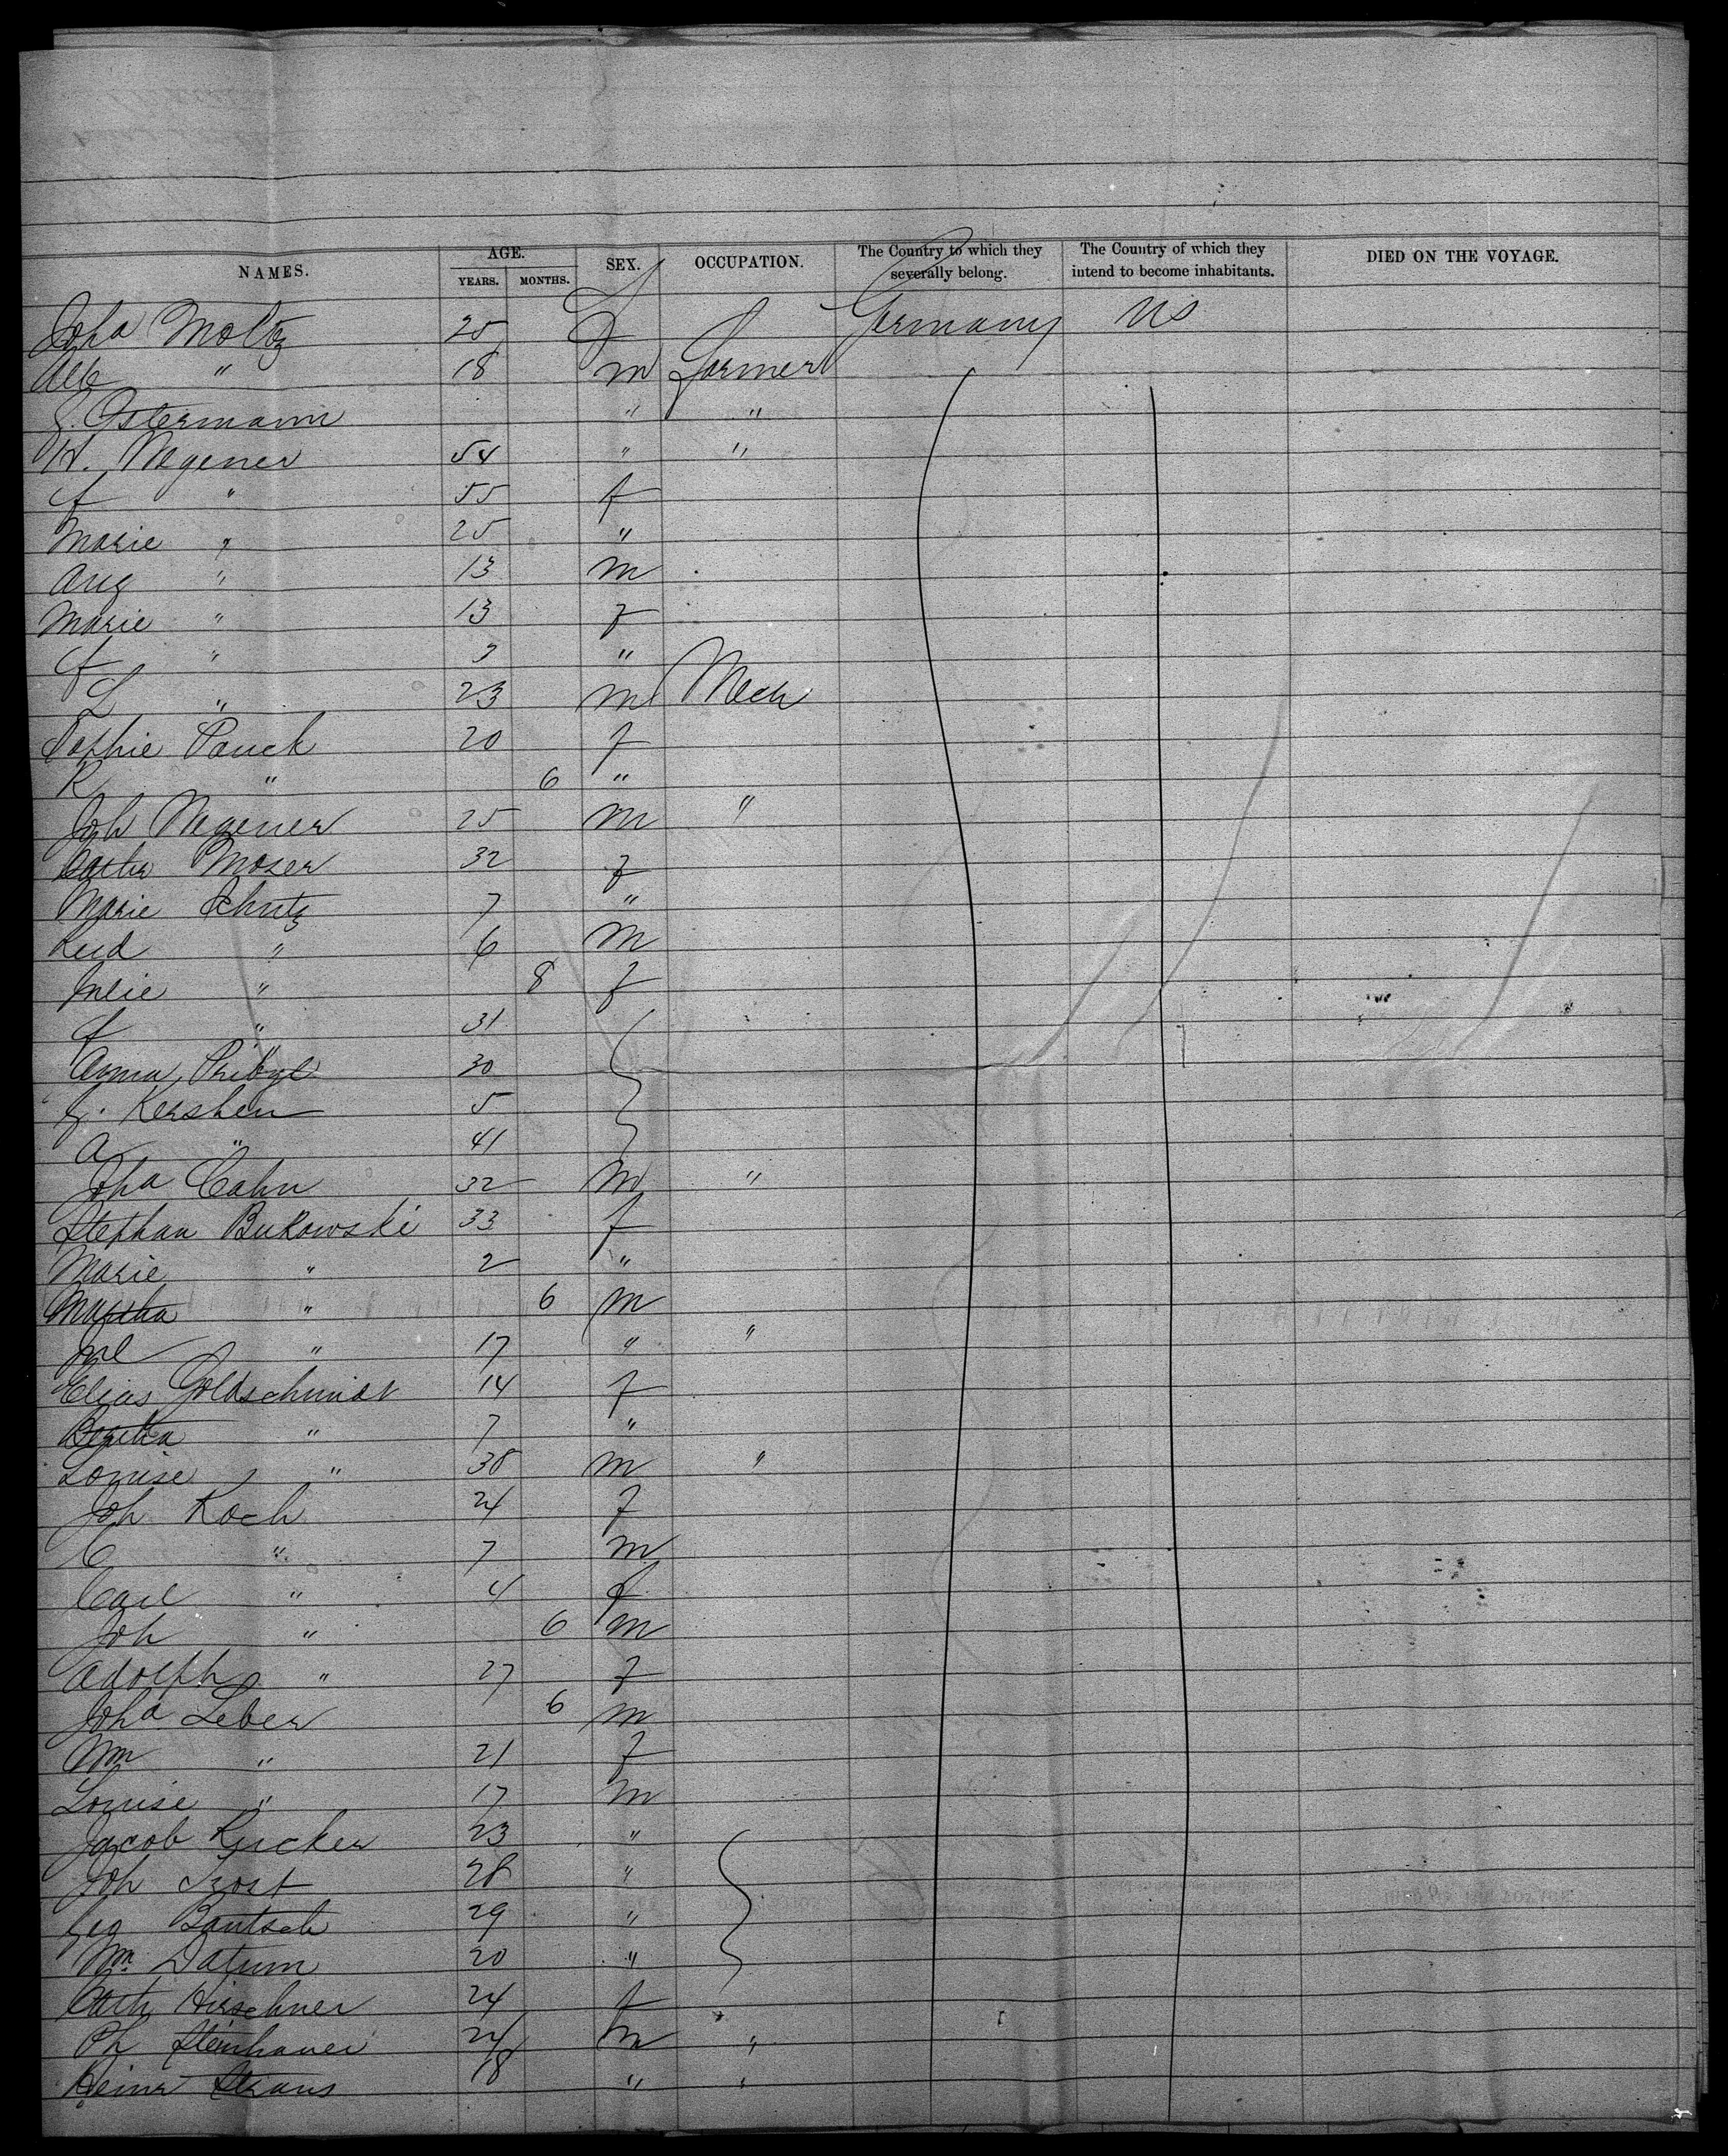 NAMES. AGE. YEARS. MONTHS. SEX. OCCUPATION. The Country to which they severally belong. The Country of which they intend to become inhabitants. DIED ON THE VOYAGE.
Joha Moltz 25 f Germany US
Alb " 18 m Farmer
Ostermann " "
H. Wegener 54 " "
f " 55 f
Marie " 25 "
Aug " 13 m
Marie " 13 f
f " 3 "
L " 23 m Mech
Sophie Pauck 20 f
R " 6 "
Joh Wegener 25 m "
Moser 32 f
Marie Schutz 7 "
" 6 m
" 8 f
f " 31
Anna Pribyl 30
Kershen 5
A " 41
Joha Cahn 32 m "
Stephan Bukowski 33 f
Marie " 2 "
Martha " 6 m
Jul " 17 " "
Elias Goldschmidt 14 f
Bertha " 7 "
Louise " 38 m "
Joh Koch 24 f
C " 7 m
Carl " 4 f
Joh " 6 m
Adolph " 27 f
Joha Leber 6 m
Wm " 21 f
Louise " 17 m
Jacob Rucker 23 "
Joh Trost 28 "
Geo Bautsch 29 "
Wm Datum 20 "
Cath Hirschner 24 f
Ph Steinhauer 24 m "
Heinr Straus 18 " "